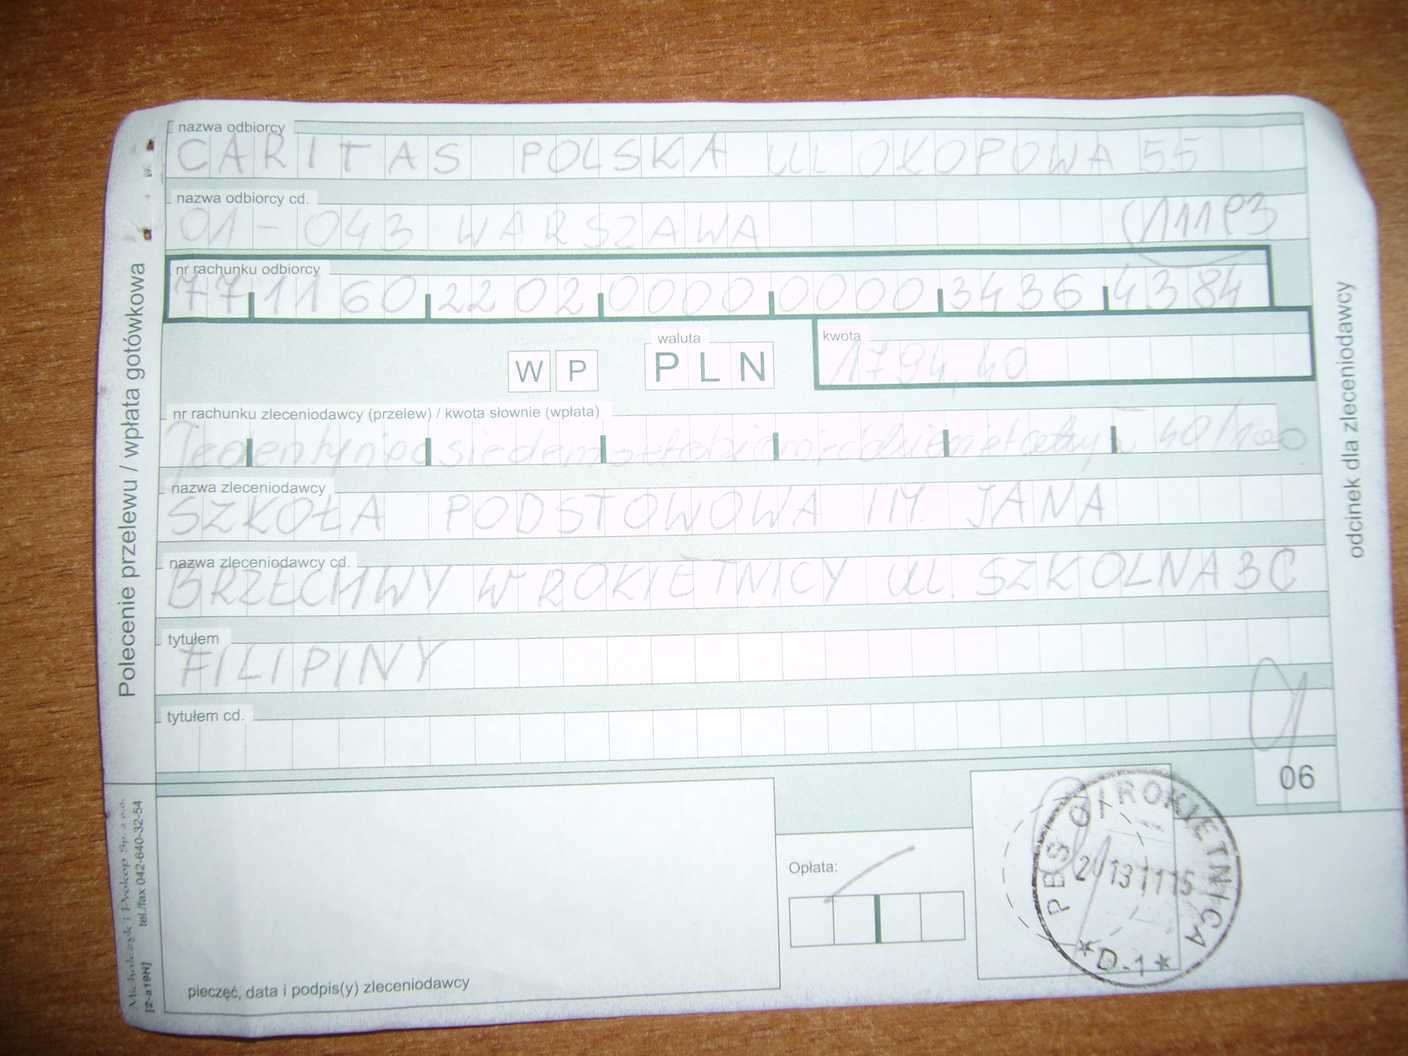 nazwa odbiorcy
CARITAS POLSKA UL OKOPOWA 55
nazwa odbiorcy cd.
01-043 WARSZAWA
nr rachunku odbiorcy
77 1160 2202 0000 0000 3436 4384
W P
waluta
PLN
kwota
1794,40
nr rachunku zleceniodawcy (przelew) / kwota słownie (wpłata)
40/100
nazwa zleceniodawcy
SZKOŁA PODSTOWOWA IM. JANA
nazwa zleceniodawcy cd.
BRZECHWY W ROKIETNICY UL. SZKOLNA 3C
tytułem
FILIPINY
tytułem cd.
06
Opłata:
PBS O/ROKIETNICA
20131115
*D-1*
pieczęć, data i podpis(y) zleceniodawcy
Polecenie przelewu / wpłata gotówkowa
odcinek dla zleceniodawcy
Michalczyk i Prokop Sp. z o.o.
tel./fax 042-640-32-54